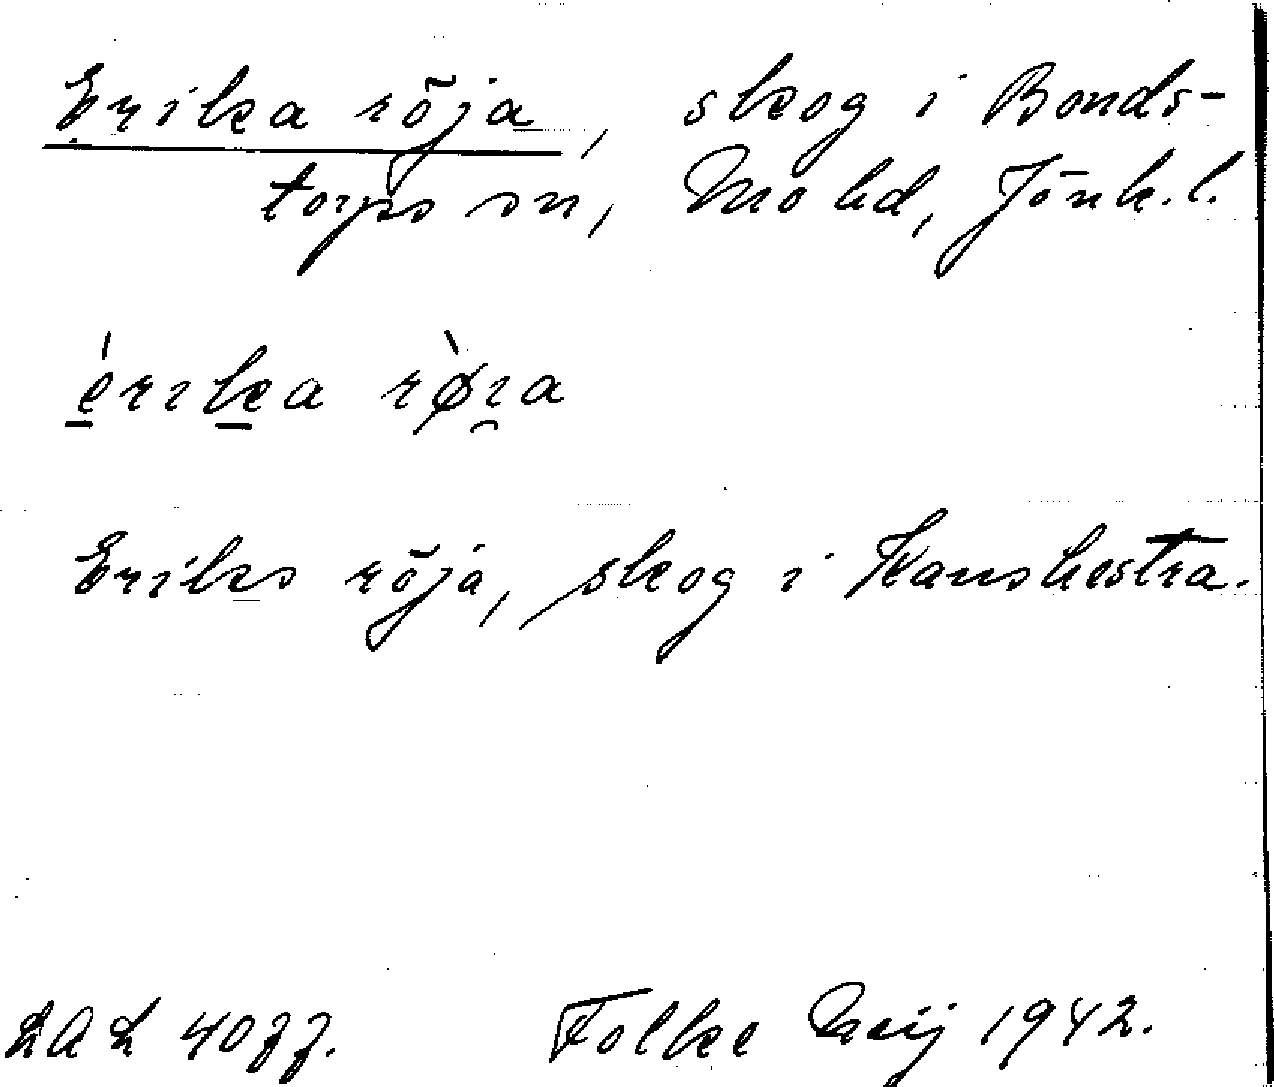 Erika röja, skog i Bonds-
torps sn, Mo hd, Jönk. l.
èrıka rø̀ıa
Eriks röja, skog i Kanshestra.
LAL 4077. Folke Heij 1942.